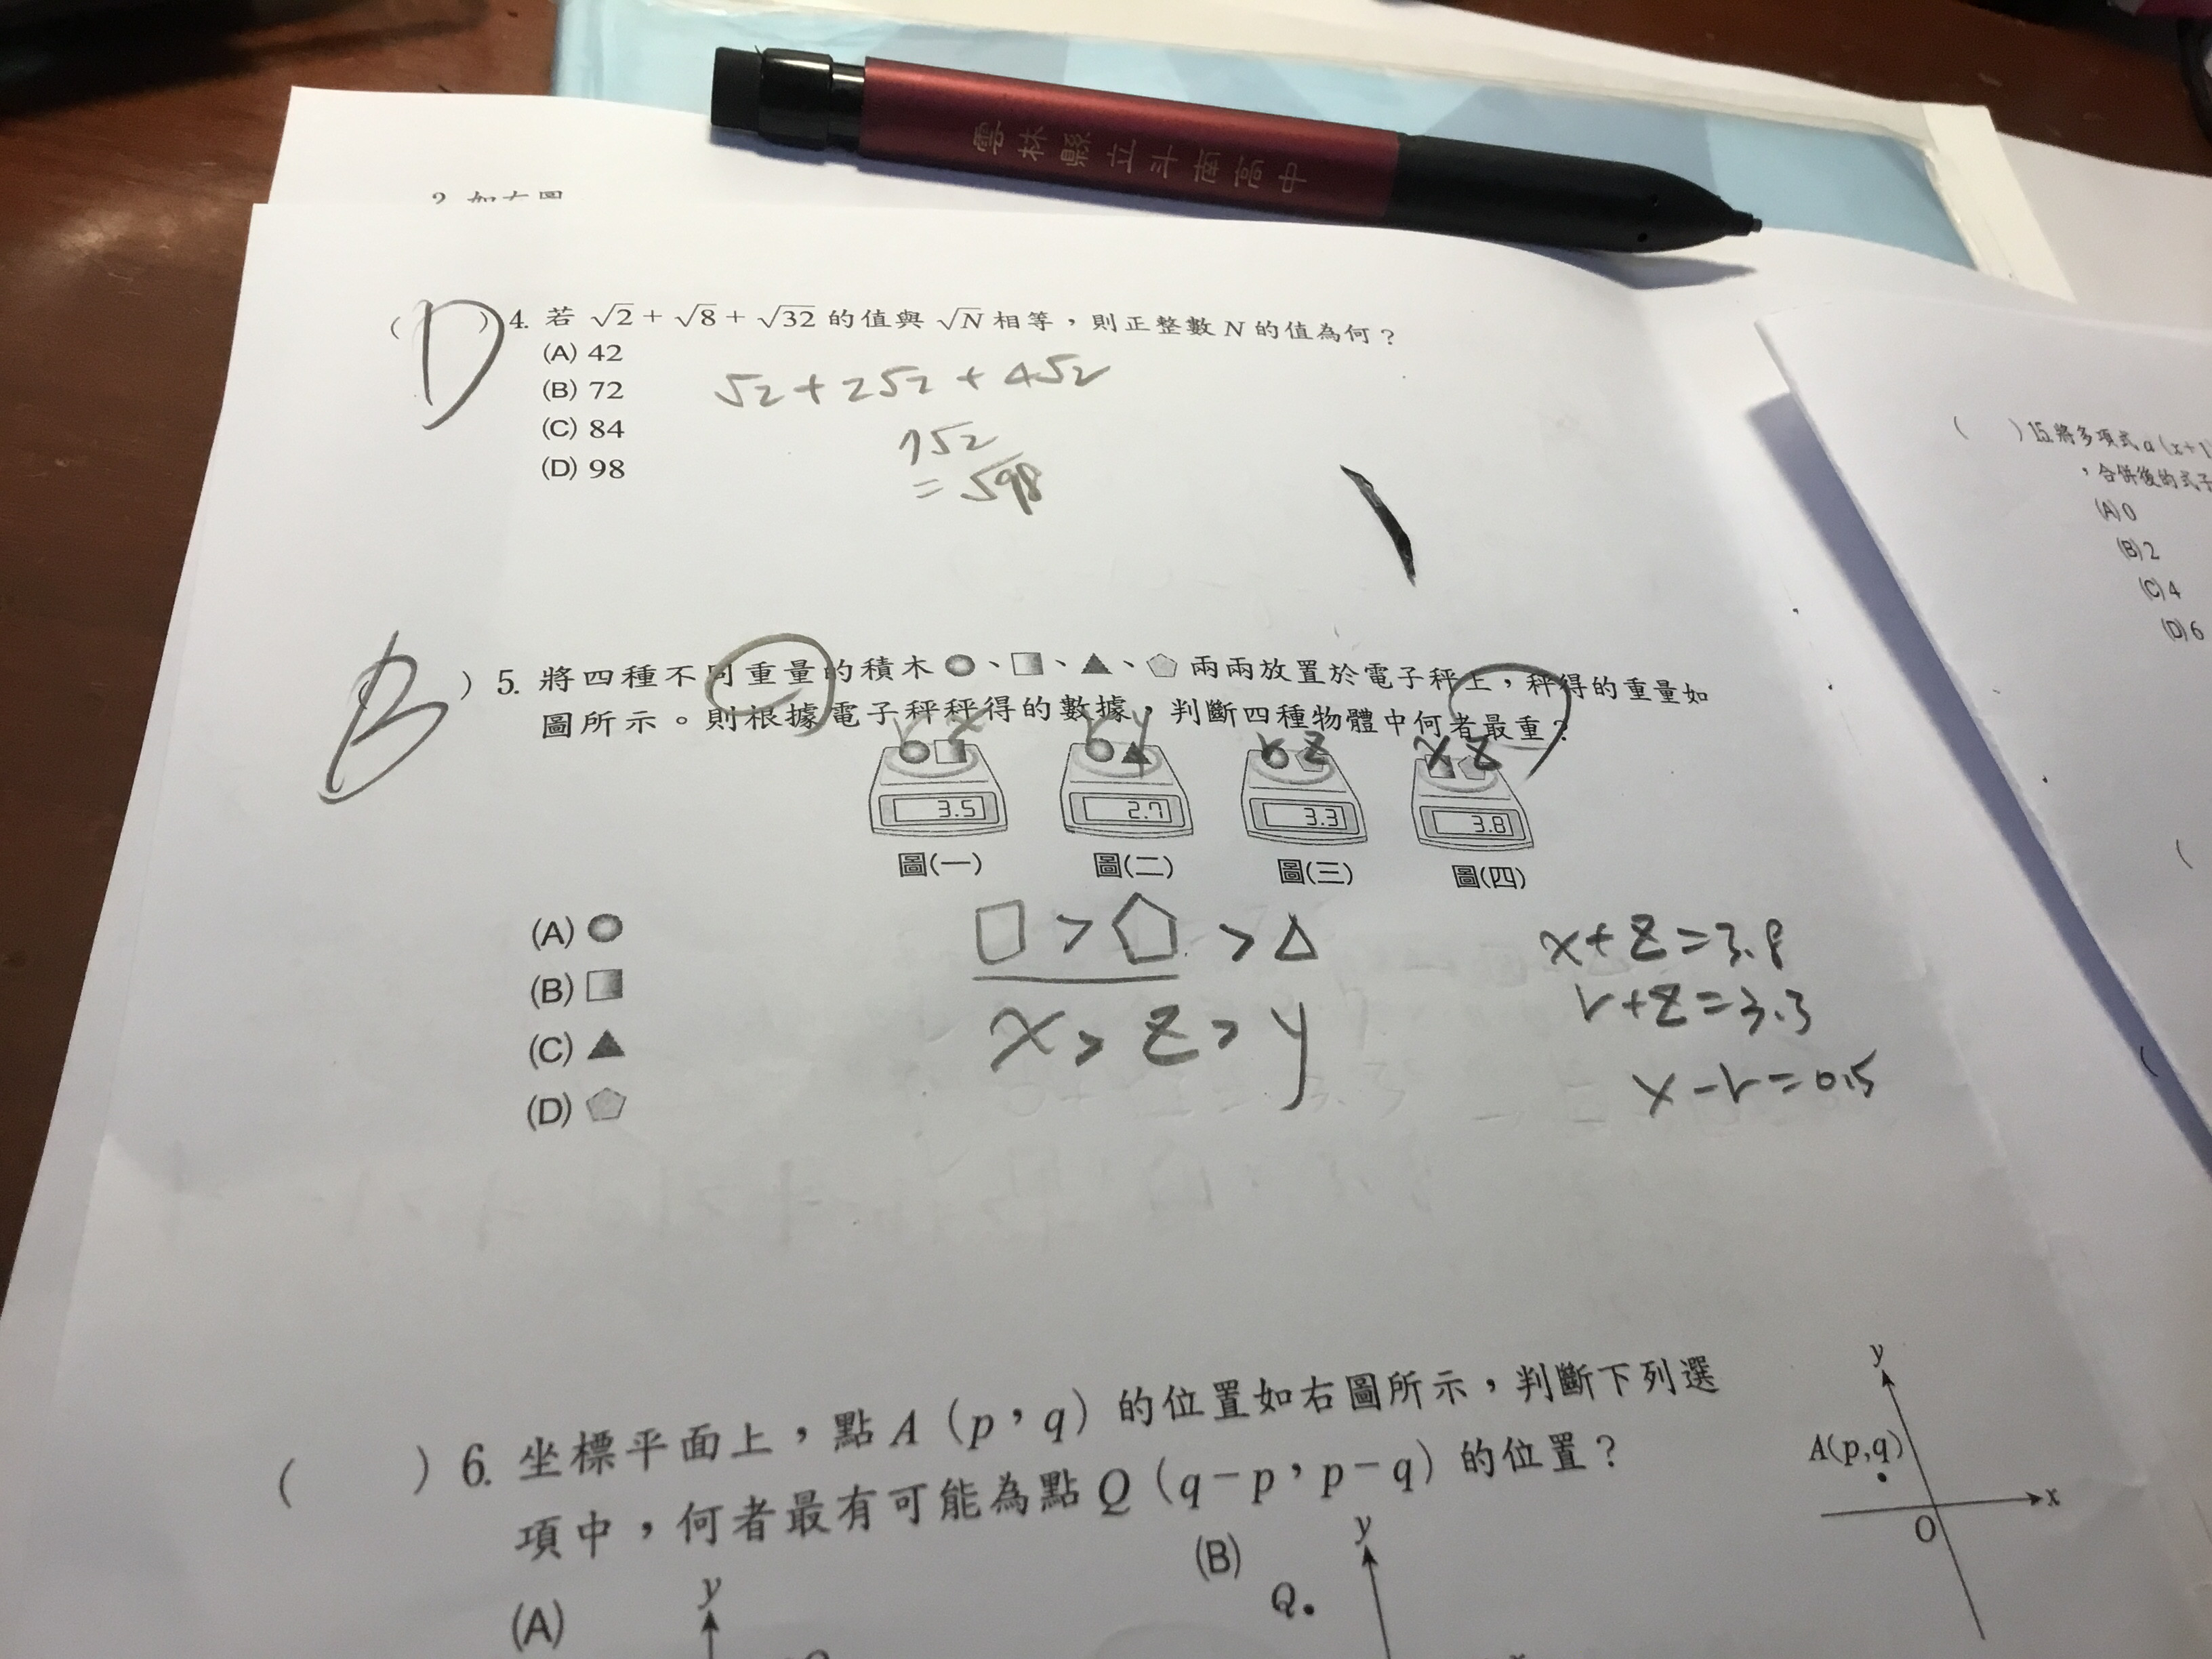 雲林縣立斗南高中
2. 如右圖
( D ) 4. 若 √2 + √8 + √32 的值與 √N 相等，則正整數 N 的值為何？
(A) 42
(B) 72
(C) 84
(D) 98
√2 + 2√2 + 4√2
7√2
= √98
B ) 5. 將四種不同重量的積木 、 、 、 兩兩放置於電子秤上，秤得的重量如
圖所示。則根據電子秤秤得的數據，判斷四種物體中何者最重？
r x r y r z x z
3.5 2.7 3.3 3.8
圖(一) 圖(二) 圖(三) 圖(四)
(A)
(B)
(C)
(D)
□ > ⬠ > △
x > z > y
x + z = 3.8
r + z = 3.3
x - r = 0.5
( ) 6. 坐標平面上，點 A（p，q）的位置如右圖所示，判斷下列選
項中，何者最有可能為點 Q（q－p，p－q）的位置？
y
A(p,q)
x
O
(A)
y
(B)
y
Q
( ) 15. 將多項式 a (x+1
，合併後的式子
(A) 0
(B) 2
(C) 4
(D) 6